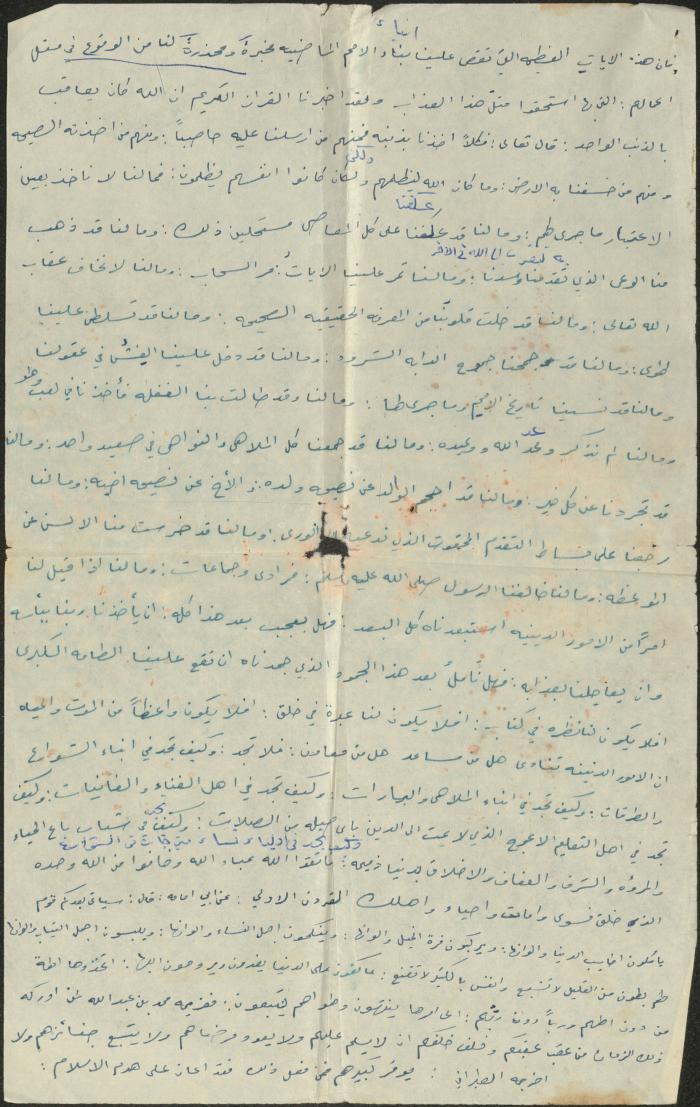 أنباء
فإن هذه الآيات العظيمة التي تقص علينا بناء الأمم الماضيه مخبرة ومحذرة لنا من الوقوع في مثل
اعمالهم : التي بها استحقوا مثل هذا العذاب ولقد اخبرنا القران الكريم ان الله كان يعاقب
بالذنب الواحد : قال تعالى : فكلاً اخذنا بذنبه فمنهم من ارسلنا عليه حاصباً : ومنهم من اخذته الصيحه
ومنهم من خسفنا به الارض : وما كان الله ليظلمهم ولكن كانوا انفسهم يظلمون : فمالنا لا ناخذ بعين
ولكن
عكفنا
الاعتبار ما جرى لهم : ومالنا قد عكفنا على كل المعاصى مستحلين ذلك : ومالنا قد ذهب
منا الوعى الذي تقدمنا وسدنا : ومالنا تمر علينا الايات مر السحاب : ومالنا لا نخاف عقاب
الله تعالى : ومالنا قد خلت قلوبنا من المعرفه الحقيقيه الصحيحه : ومالنا قد تسلطى علينا
الهوى : ومالنا قد جمحنا جموح الدابه الشرود : ومالنا قد دخل علينا الغش في عقولنا
ومالنا قد نسينا تاريخ الأمم وما جرى لها : ومالنا وقد طالت بنا الغفله فأخذنا في لعب ولهو
ومالنا لم نذكر وعد الله ووعيده : ومالنا قد جمعنا كل الملاهى والنواهى في صعيد واحد : ومالنا
قد تجردنا عن كل خير : ومالنا قد احجم الوالد عن نصيحه ولده : والأخ عن نصيحه اخيه : ومالنا
رجعنا على بساط التقدم الممقوت الذي الورى : ومالنا قد خرست منا الالسن عن
الموعظه : ومالنا خالفنا الرسول صلى الله عليه وسلم : فرادى وجماعات : ومالنا اذا قيل لنا
امراً من الامور الدينيه استبعدناه كل البعد : فهل بعجب بعد هذا كله : ان يأخذنا ربنا ببأسه
وان يعاجلنا بعذابه : فهل نأمل بعد هذا الجحود الذي جحدناه ان تقع علينا الطامه الكبرى
افلا يكون لنا نظره في كتاب : افلا يكون لنا عبرة في خلق : افلا يكون واعظاً من الموت والحياه
ان الامور الدينيه تنادى هل من مساعد هل من معاون : فلا تجد : وكيف تجد في ابناء الشوارع
والطرقات : وكيف تجد في ابناء الملاهى والبارات : وكيف تجد في اهل الغناء والغانيات : وكيف
تجد في اهل التعليم الاعوج الذي لا يمت الى الدين باى صله من الصلات : وكيف تجد في شباب باع الحياء
والمروءه والشرف والعفاف والاخلاق بدنيا ذميمه : فاتقوا الله عباد الله وخافوا من الله وحده
الذي خلق فسوى وامات واحياء واهلك القرون الاولى : عن ابي امامه : قال : سياتى بعدكم قوم
ياكلون اطايب الدنيا والوانها : ويركبون فرة الخيل والوانها : وينكحون اجمل النساء والوانها : ويلبسون اجمل الثياب والوانها
لهم بطون من القليل لا تشبع وانفس بالكثير لا تقنع : عاكفون على الدنيا يغدون ويروحون اليها : اتخذوها الهة
من دون الههم ورباً دون ربهم : الى امرها ينتهون وهواهم يتبعون : فعزيمه محمد بن عبدالله لمن ادركه
ذلك الزمان من عقب عقبكم وخلف خلفكم ان لا يسلم عليهم ولا يعود مرضاهم ولا يتبع جنائزهم ولا
يوقر كبيرهم فمن فعل ذلك فقد اعان على هدم الاسلام : اخرجه الطبراني